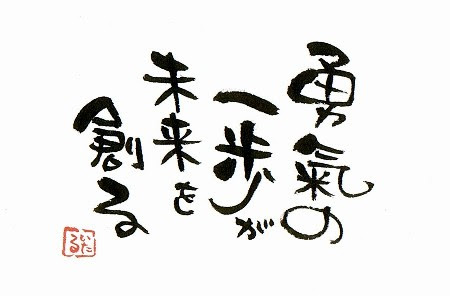 勇氣の
一歩が
未来を
創る
いたる